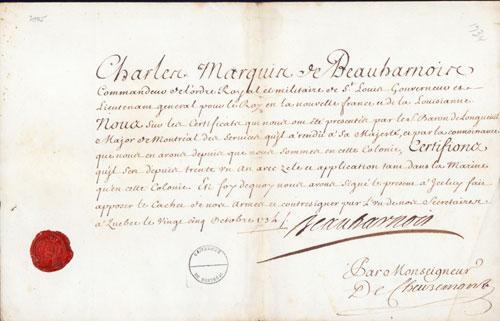 Charles Marquis de Beauharnois
Commandeur de l'ordre Royal et militaire de St. Louis Gouverneur et
Lieutenant general pour le Roy en la nouvelle france et de la Louisianne
Nous sur les Certificats qui nous ont été presentés par le Sr. Baron de Longueuil
Major de Montréal des Services qu'il a rendu à Sa Majesté, et par la connoissance
que nous en avons depuis que nous sommes en cette Colonie, Certifions
qu'il sert depuis trente un An avec zele et application tant dans la Marine
qu'en cette Colonie. En foy de quoy nous avons signé le present à Iceluy fait
apposer le Cachet de nos Armes et contresigner par l'un de nos Secretaires
à Quebec le Vingt cinq Octobre 1734
Beauharnois
Par Monseigneur
De